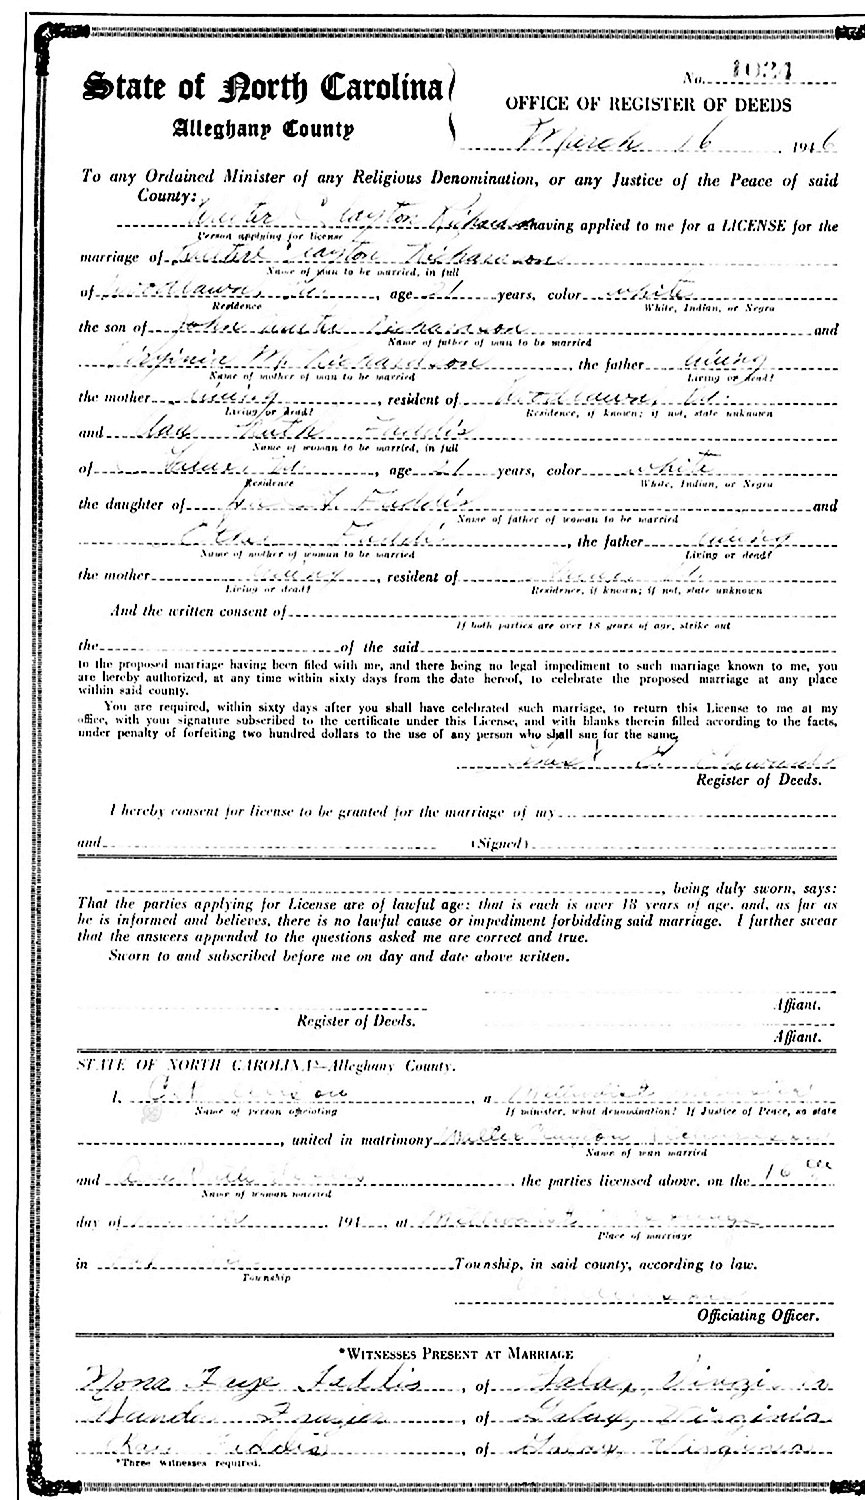 State of North Carolina
Alleghany County
No. 1024
OFFICE OF REGISTER OF DEEDS
March 16, 1946
To any Ordained Minister of any Religious Denomination, or any Justice of the Peace of said
County:
Walter Clayton Richardson having applied to me for a LICENSE for the
Person applying for license
marriage of Walter Clayton Richardson
Name of man to be married, in full
of Woodlawn, Va., age 21 years, color white
Residence
White, Indian, or Negro
the son of John Richardson and
Name of father of man to be married
Virginia M. Richardson, the father living
Name of mother of man to be married
Living or dead?
the mother living, resident of Woodlawn, Va.
Living or dead?
Residence, if known; if not, state unknown
and Ruth Faddis
Name of woman to be married, in full
of Va., age 21 years, color white
Residence
White, Indian, or Negro
the daughter of Faddis and
Name of father of woman to be married
Faddis, the father living
Name of mother of woman to be married
Living or dead?
the mother living, resident of Va.
Living or dead?
Residence, if known; if not, state unknown
And the written consent of
If both parties are over 18 years of age, strike out
the of the said
to the proposed marriage having been filed with me, and there being no legal impediment to such marriage known to me, you
are hereby authorized, at any time within sixty days from the date hereof, to celebrate the proposed marriage at any place
within said county.
You are required, within sixty days after you shall have celebrated such marriage, to return this License to me at my
office, with your signature subscribed to the certificate under this License, and with blanks therein filled according to the facts,
under penalty of forfeiting two hundred dollars to the use of any person who shall sue for the same.
Register of Deeds.
I hereby consent for license to be granted for the marriage of my
and (Signed)
, being duly sworn, says:
That the parties applying for License are of lawful age; that is each is over 18 years of age, and, as far as
he is informed and believes, there is no lawful cause or impediment forbidding said marriage. I further swear
that the answers appended to the questions asked me are correct and true.
Sworn to and subscribed before me on day and date above written.
Affiant.
Register of Deeds.
Affiant.
STATE OF NORTH CAROLINA—Alleghany County.
I, a Methodist minister
Name of person officiating
If minister, what denomination? If Justice of Peace, so state
, united in matrimony Walter Clayton Richardson
Name of man married
and the parties licensed above, on the 16th
Name of woman married
day of 194 at Methodist Parsonage
Place of marriage
in Township, in said county, according to law.
Township
Officiating Officer.
*WITNESSES PRESENT AT MARRIAGE
Mona Faye Feddis, of Galax, Virginia
Frazier, of Galax, Virginia
Feddis, of Galax, Virginia
*Three witnesses required.